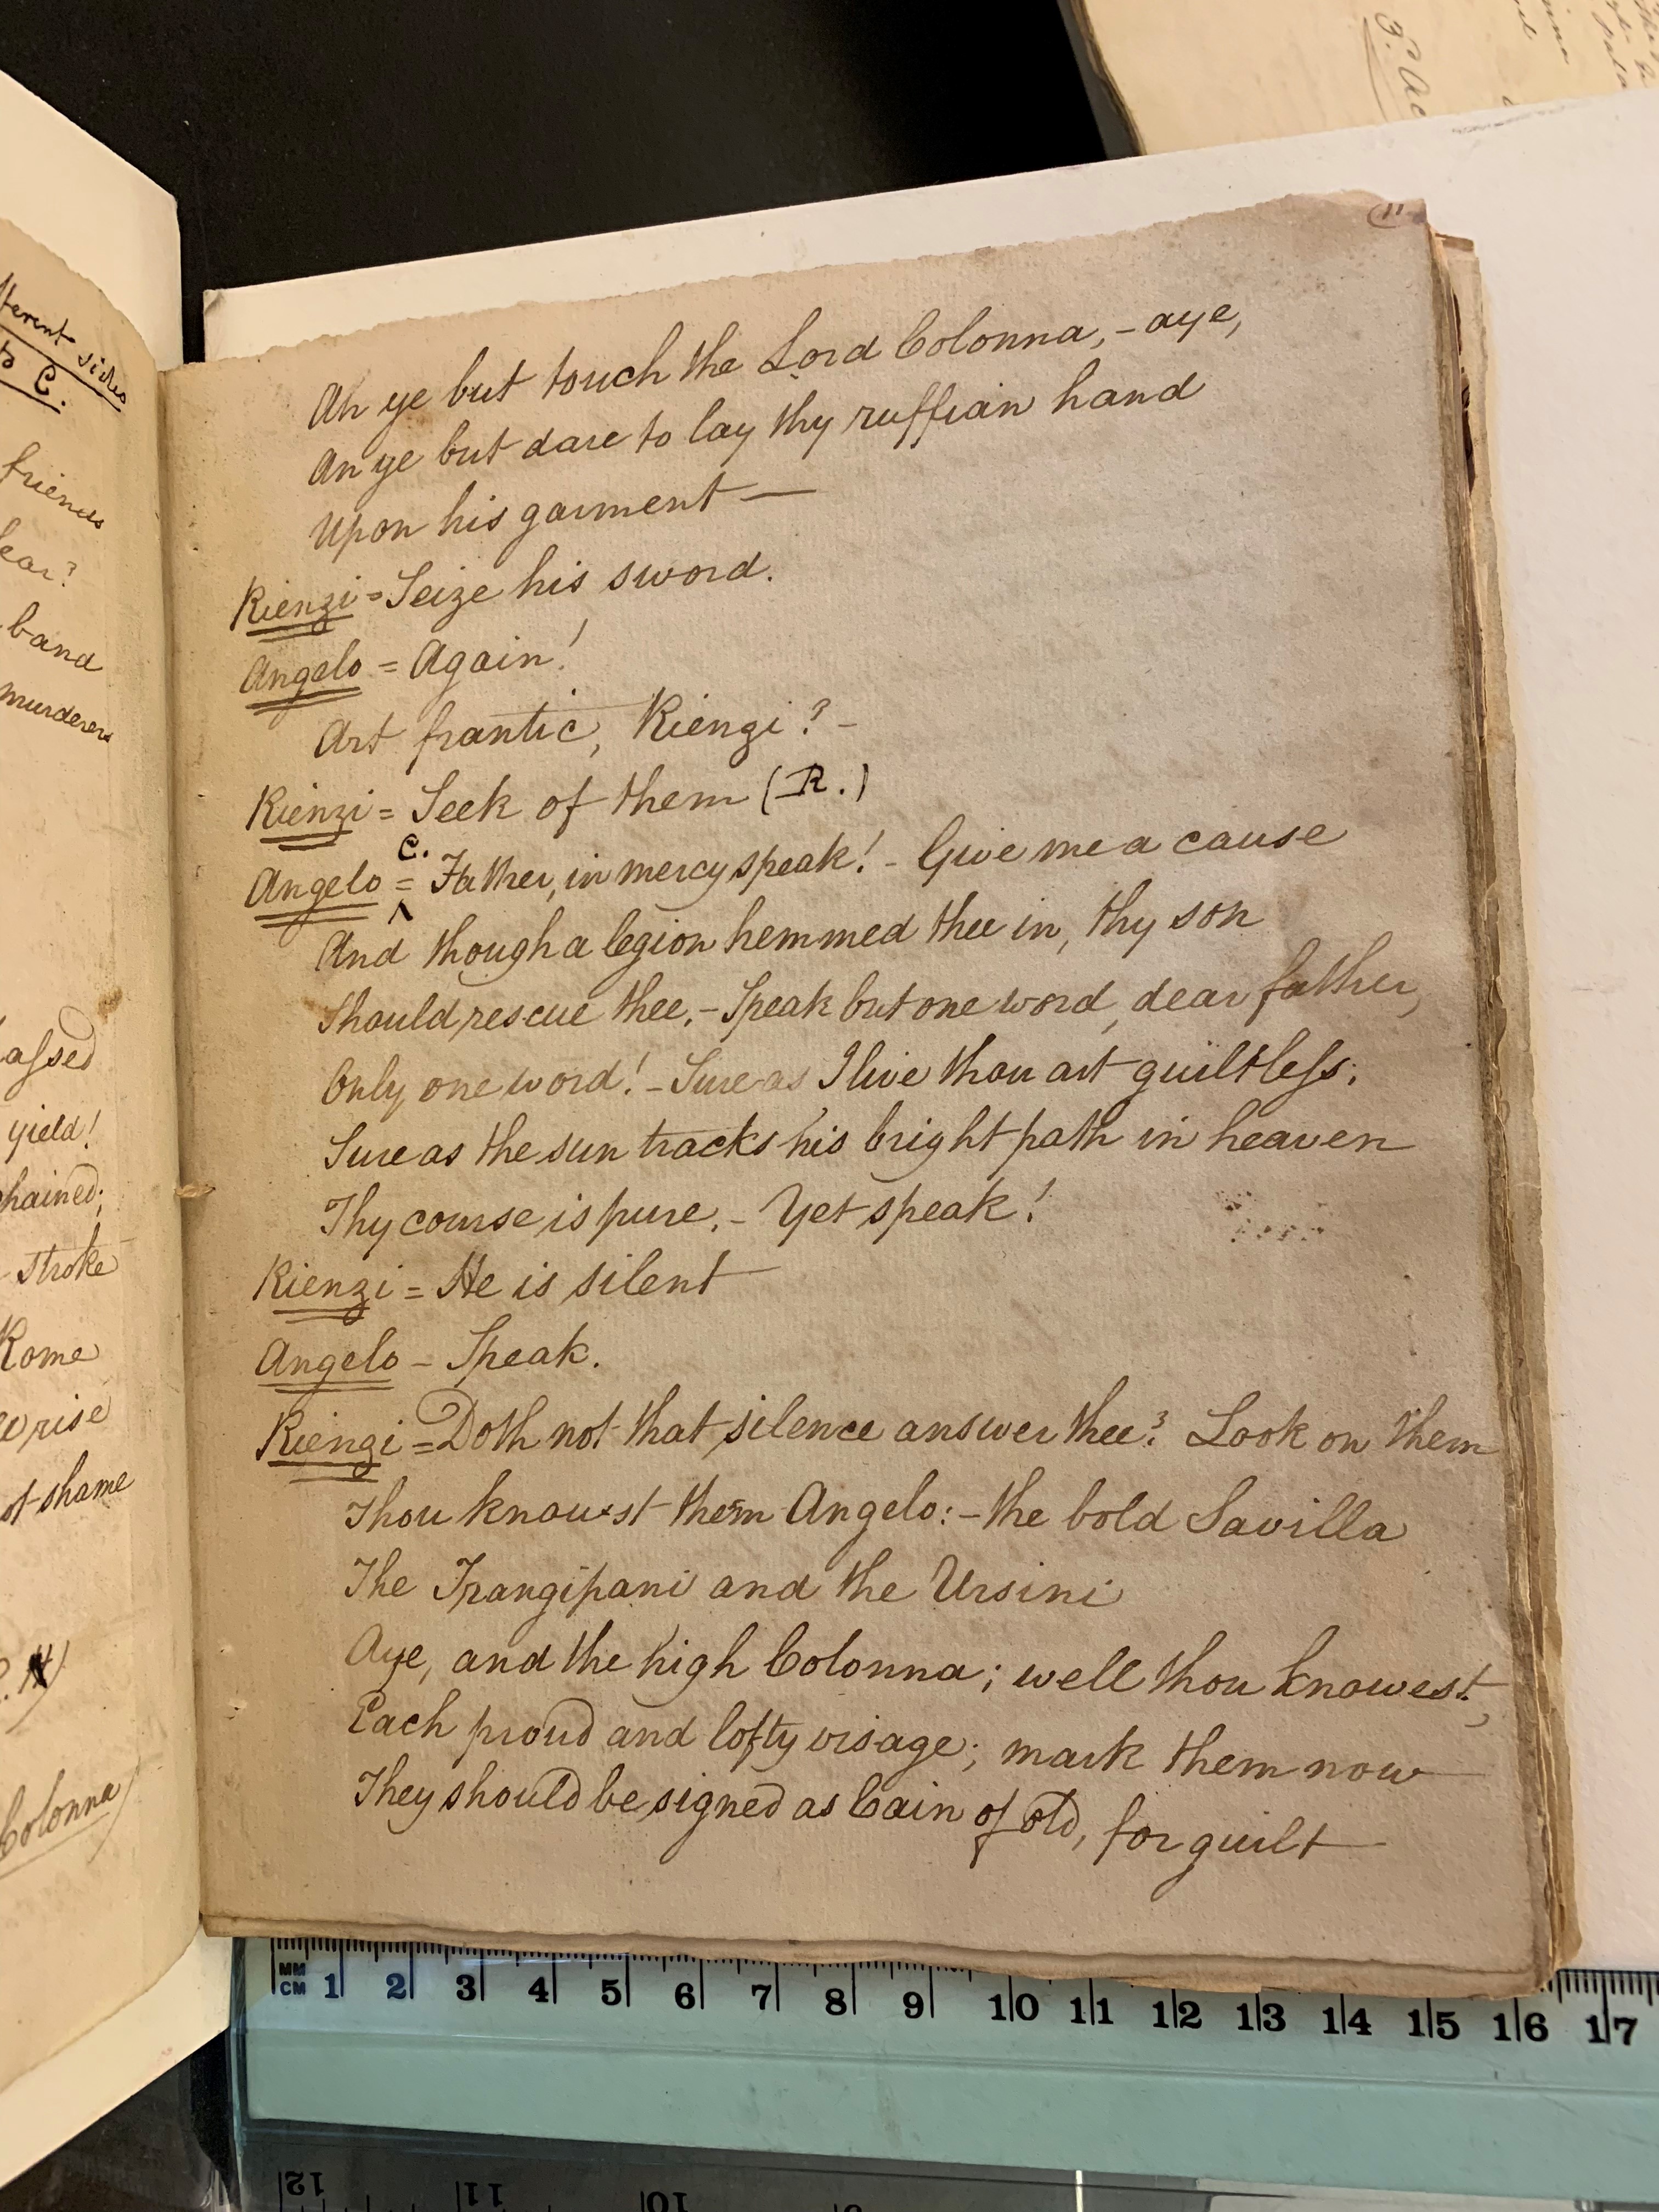 friends
band
murderers
yield!
stroke
Rome
rise
shame
Colonna)
11
An ye but touch the Lord Colonna, - aye,
An ye but dare to lay thy ruffian hand
Upon his garment —
Rienzi = Seize his sword.
Angelo = Again!
Art frantic, Rienzi? -
Rienzi = Seek of them (R.)
C.
Angelo = Father, in mercy speak! - Give me a cause
And though a legion hemmed thee in, thy son
Should rescue thee. - Speak but one word, dear father,
Only one word! - Sure as I live thou art guiltless;
Sure as the sun tracks his bright path in heaven
Thy course is pure. - Yet speak!
Rienzi = He is silent
Angelo - Speak.
Rienzi = Doth not that silence answer thee? Look on them
Thou know'st them Angelo: - the bold Savilla
The Frangipani and the Ursini
Aye, and the high Colonna; well thou knowest,
Each proud and lofty visage; mark them now
They should be signed as Cain of old, for guilt
MM
CM 1 2 3 4 5 6 7 8 9 10 11 12 13 14 15 16 17
12 11 10